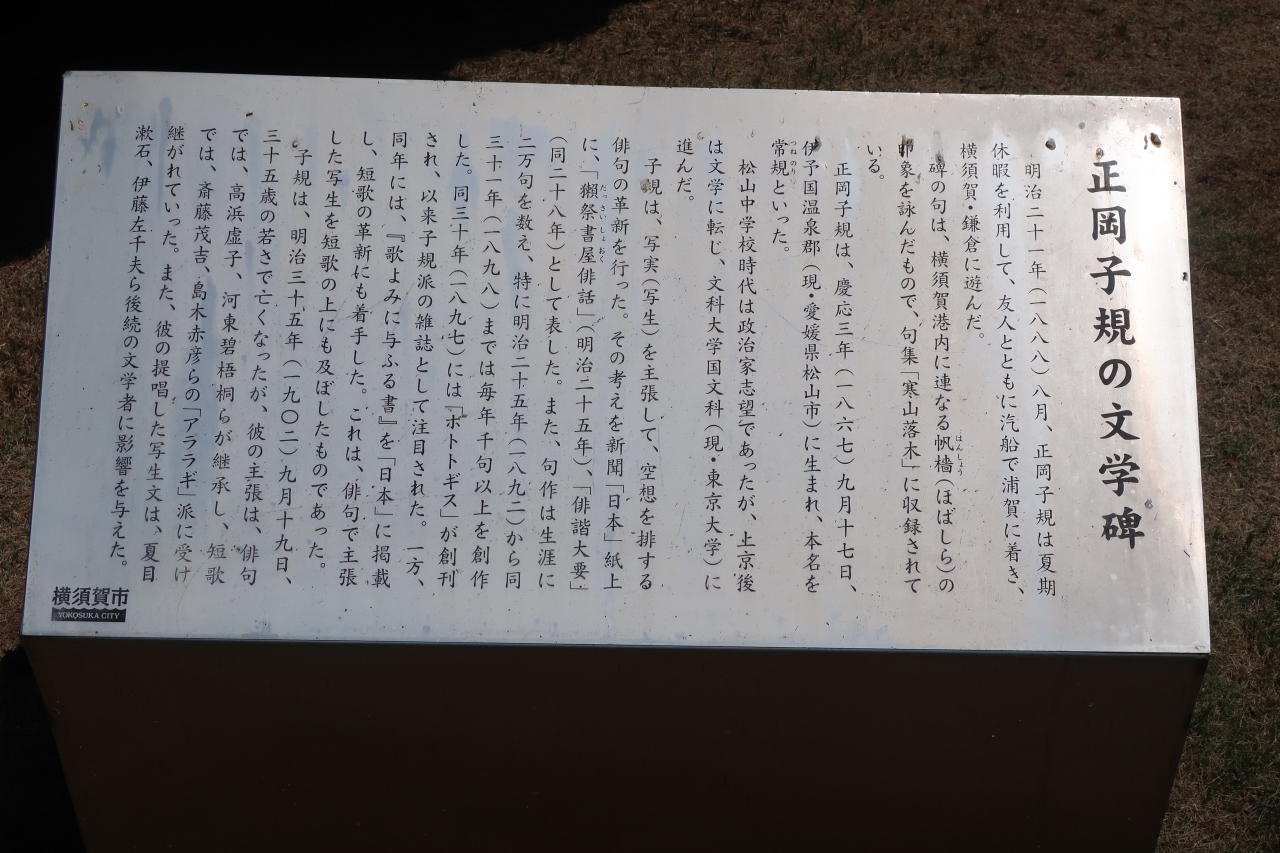 正岡子規の文学碑
明治二十一年（一八八八）八月、正岡子規は夏期
休暇を利用して、友人とともに汽船で浦賀に着き、
横須賀・鎌倉に遊んだ。
碑の句は、横須賀港内に連なる帆檣（ほばしら）の
はんしょう
印象を詠んだもので、句集「寒山落木」に収録されて
いる。
正岡子規は、慶応三年（一八六七）九月十七日、
伊予国温泉郡（現・愛媛県松山市）に生まれ、本名を
常規といった。
つねのり
松山中学校時代は政治家志望であったが、上京後
は文学に転じ、文科大学国文科（現・東京大学）に
進んだ。
子規は、写実（写生）を主張して、空想を排する
俳句の革新を行った。その考えを新聞「日本」紙上
に、「獺祭書屋俳話」（明治二十五年）、「俳諧大要」
だっさいしょおく
（同二十八年）として表した。また、句作は生涯に
二万句を数え、特に明治二十五年（一八九二）から同
三十一年（一八九八）までは毎年千句以上を創作
した。同三十年（一八九七）には「ホトトギス」が創刊
され、以来子規派の雑誌として注目された。一方、
同年には、『歌よみに与ふる書』を「日本」に掲載
し、短歌の革新にも着手した。これは、俳句で主張
した写生を短歌の上にも及ぼしたものであった。
子規は、明治三十五年（一九〇二）九月十九日、
三十五歳の若さで亡くなったが、彼の主張は、俳句
では、高浜虚子、河東碧梧桐らが継承し、短歌
では、斎藤茂吉、島木赤彦らの「アララギ」派に受け
継がれていった。また、彼の提唱した写生文は、夏目
漱石、伊藤左千夫ら後続の文学者に影響を与えた。
横須賀市
YOKOSUKA CITY